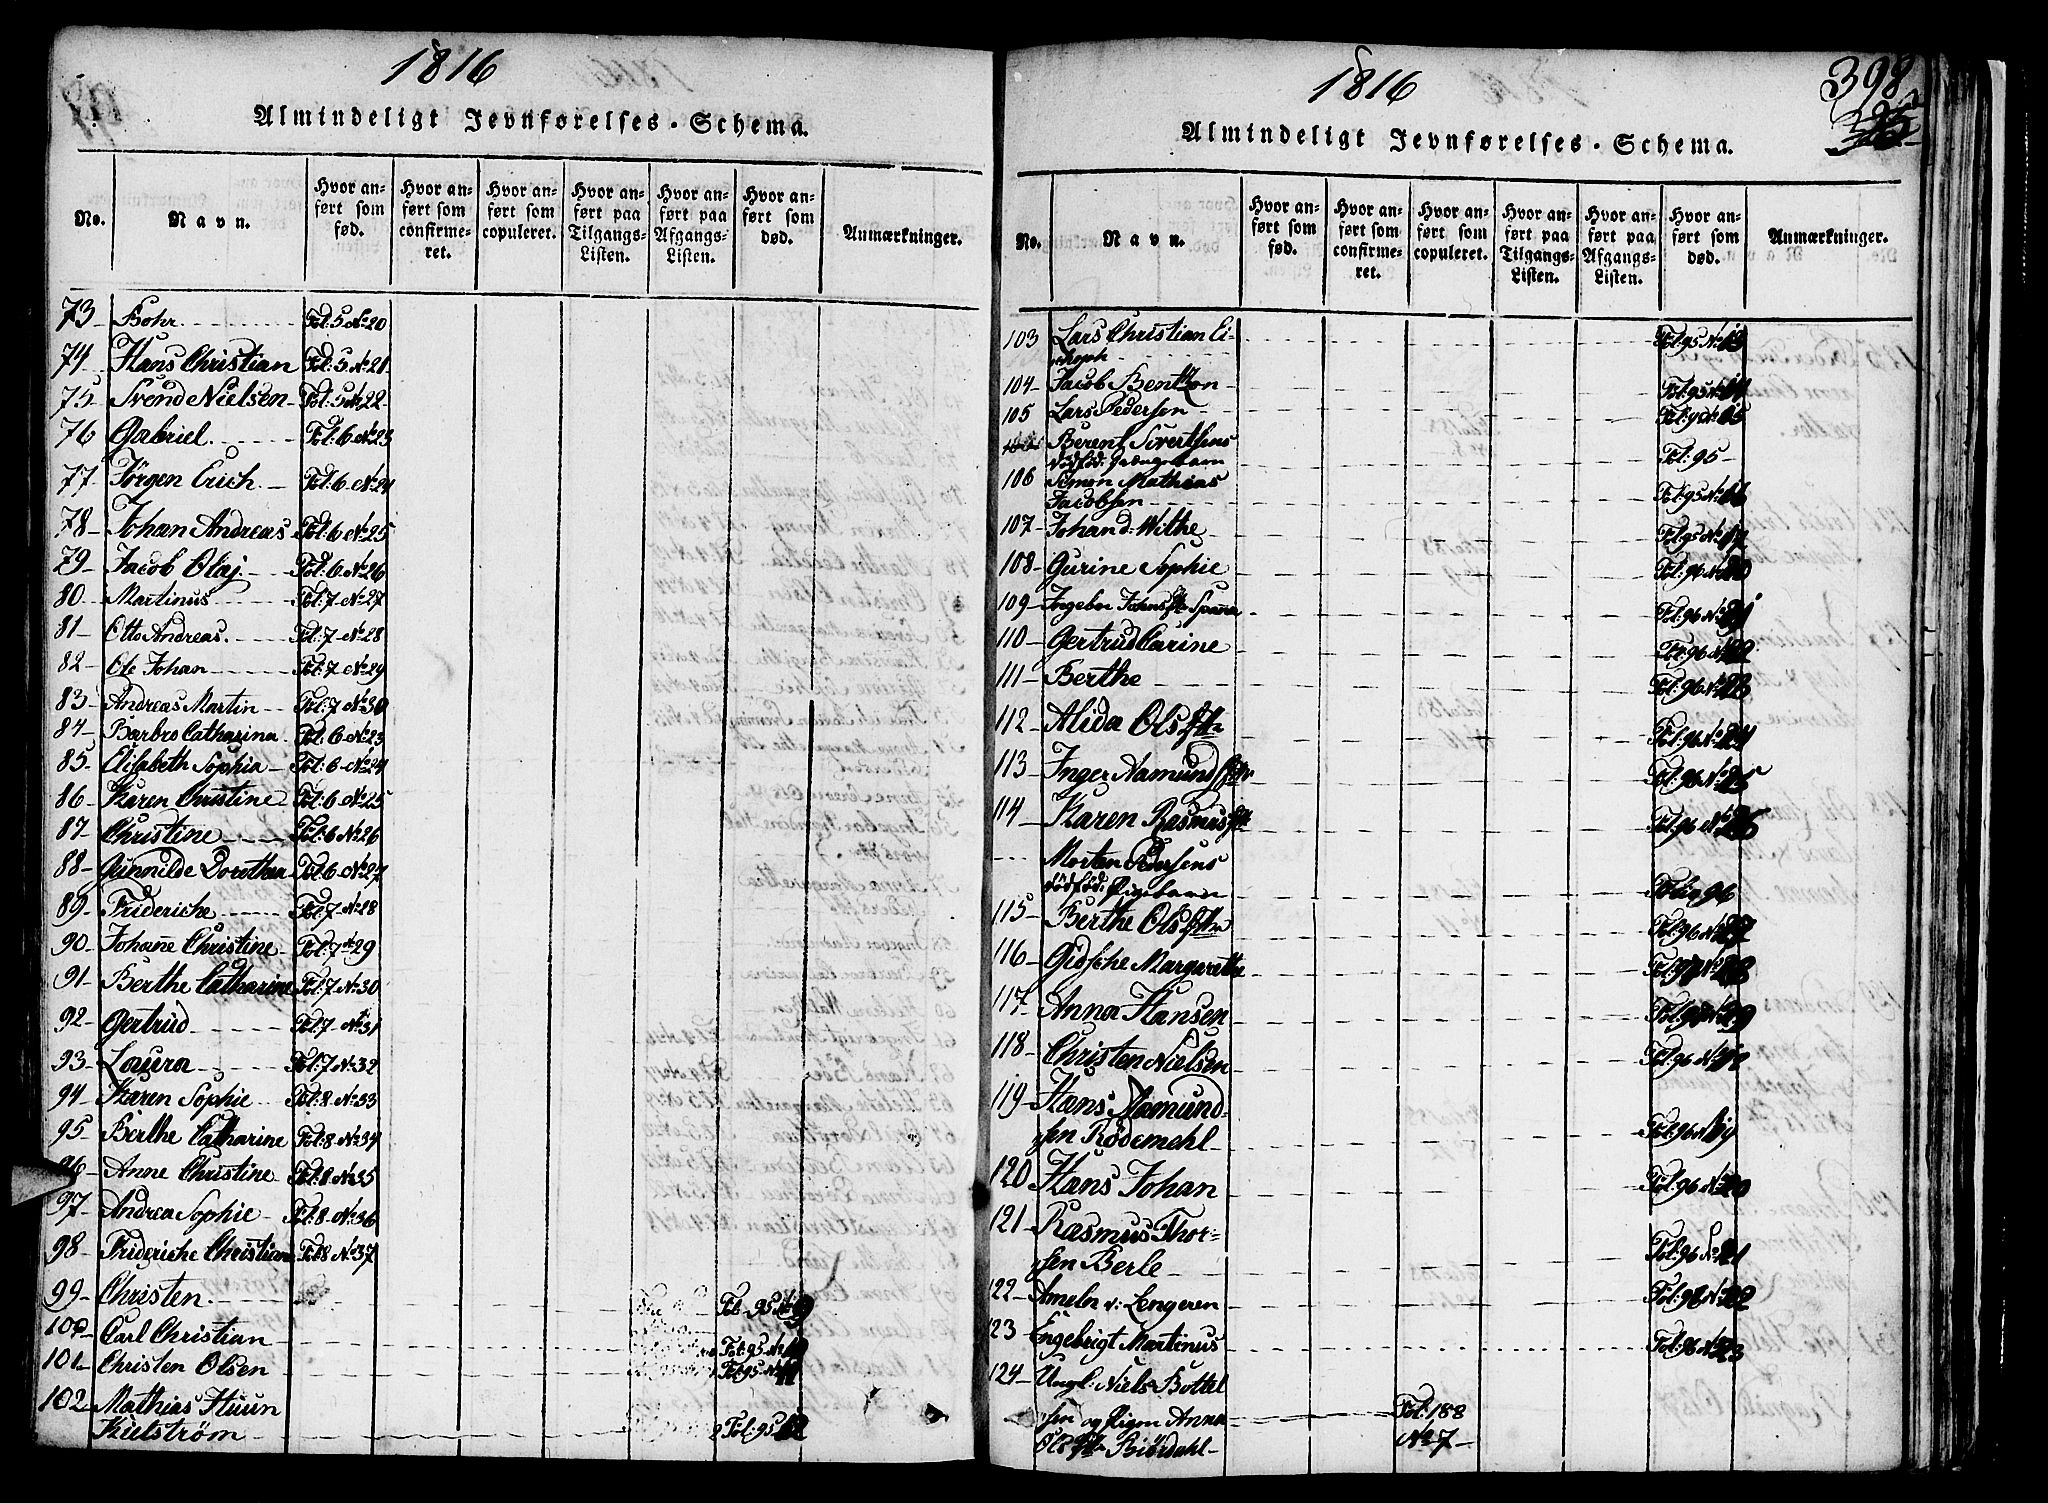 1816
Almindeligt Jevnførelses-Schema.
No. Navn. Hvor anført som fød. Hvor anført som confirmeret. Hvor anført som copuleret. Hvor anført paa Tilgangs-Listen. Hvor anført paa Afgangs-Listen. Hvor anført som død. Anmærkninger.
73 Bohr Fol:5 No 20
74 Hans Christian Fol:5 No 21
75 Svend Nielsen Fol:5 No 22
76 Gabriel Fol:6 No 23
77 Jørgen Erich Fol:6 No 24
78 Johan Andreas Fol:6 No 25
79 Jacob Olaj Fol:6 No 26
80 Martinus Fol:7 No 27
81 Otto Andreas Fol:7 No 28
82 Ole Johan Fol:7 No 29
83 Andreas Martin Fol:7 No 30
84 Barbro Catharina Fol:6 No 23
85 Elisabeth Sophia Fol:6 No 24
86 Karen Christine Fol:6 No 25
87 Christine Fol:6 No 26
88 Gunnilde Dorothea Fol:6 No 27
89 Frideriche Fol:7 No 28
90 Johanne Christine Fol:7 No 29
91 Berthe Catharine Fol:7 No 30
92 Gertrud Fol:7 No 31
93 Laura Fol:7 No 32
94 Karen Sophie Fol:8 No 33
95 Berthe Catharine Fol:8 No 34
96 Anne Christine Fol:8 No 35
97 Andrea Sophie Fol:8 No 36
98 Frideriche Christian Fol:8 No 37
99 Christen Fol:95 No
100 Carl Christian Fol:95 No
101 Christen Olsen Fol:95 No
102 Mathias Huun
Kielstrøm Fol:95
1816
398
Almindeligt Jevnførelses-Schema.
No. Navn. Hvor anført som fød. Hvor anført som confirmeret. Hvor anført som copuleret. Hvor anført paa Tilgangs-Listen. Hvor anført paa Afgangs-Listen. Hvor anført som død. Anmærkninger.
103 Lars Christian Fol:95 No 13
104 Jacob Bentzon Fol:95 No 14
105 Lars Pedersen Fol:95 No 15
Berent Sivertsens
dödföd: Fol:95
106 Simon Mathias
Jacobsen Fol:95 No 16
107 Johan d: Withe Fol:95 No 17
108 Gurine Sophie Fol:96 No 20
109 Ingebor Fol:96 No 21
110 Gertrud Carine Fol:96 No 22
111 Berthe Fol:96 No 23
112 Alida Olsdtr Fol:96 No 24
113 Inger Aamundsdtr Fol:96 No 25
114 Karen Rasmusdtr Fol:96 No 26
Morten Pedersens
dödföd: Pigebarn Folio 96
115 Berthe Olsdtr Fol:96 No 27
116 Gidsche Margarethe Fol: No 28
117 Anna Hansen Fol: No 29
118 Christen Nielsen Fol:96 No
119 Hans Aamund-
sen Rödemehl Fol:96 No 19
120 Hans Johan Fol:96 No 20
121 Rasmus Thor-
sen Berle Fol:96 No 21
122 Ameln v: Lengeren Fol: No 22
123 Engebrigt Martinus Fol: No 23
124 Ungl: Niels Bottel
sen og Pigen Anna Fol:188
Olsdtr Biördahl No 7